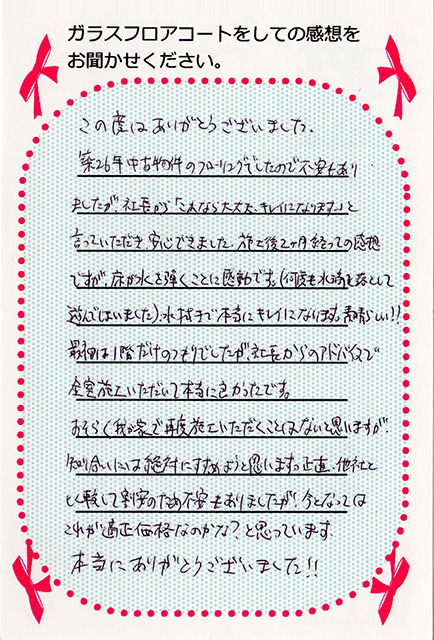 ガラスフロアコートをしての感想を
お聞かせください。
この度はありがとうございました.
築26年中古物件のフローリングでしたので不安もあり
ましたが、社長から「これなら大丈夫、キレイになります。」と
言っていただき安心できました。施工後2ヶ月経っての感想
ですが、床が水を弾くことに感動です。(何度も水滴を落として
遊んでしまいました)水拭きで本当にキレイになります。素晴らしい!!
最初は1階だけのつもりでしたが、社長からのアドバイスで
全室施工いただいて本当に良かったです。
おそらく我が家で再度施工いただくことはないと思いますが、
知り合いには絶対にすすめようと思います。正直、他社と
比較して割安のため不安もありましたが、今となっては
これが適正価格なのかな?と思っています.
本当にありがとうございました!!